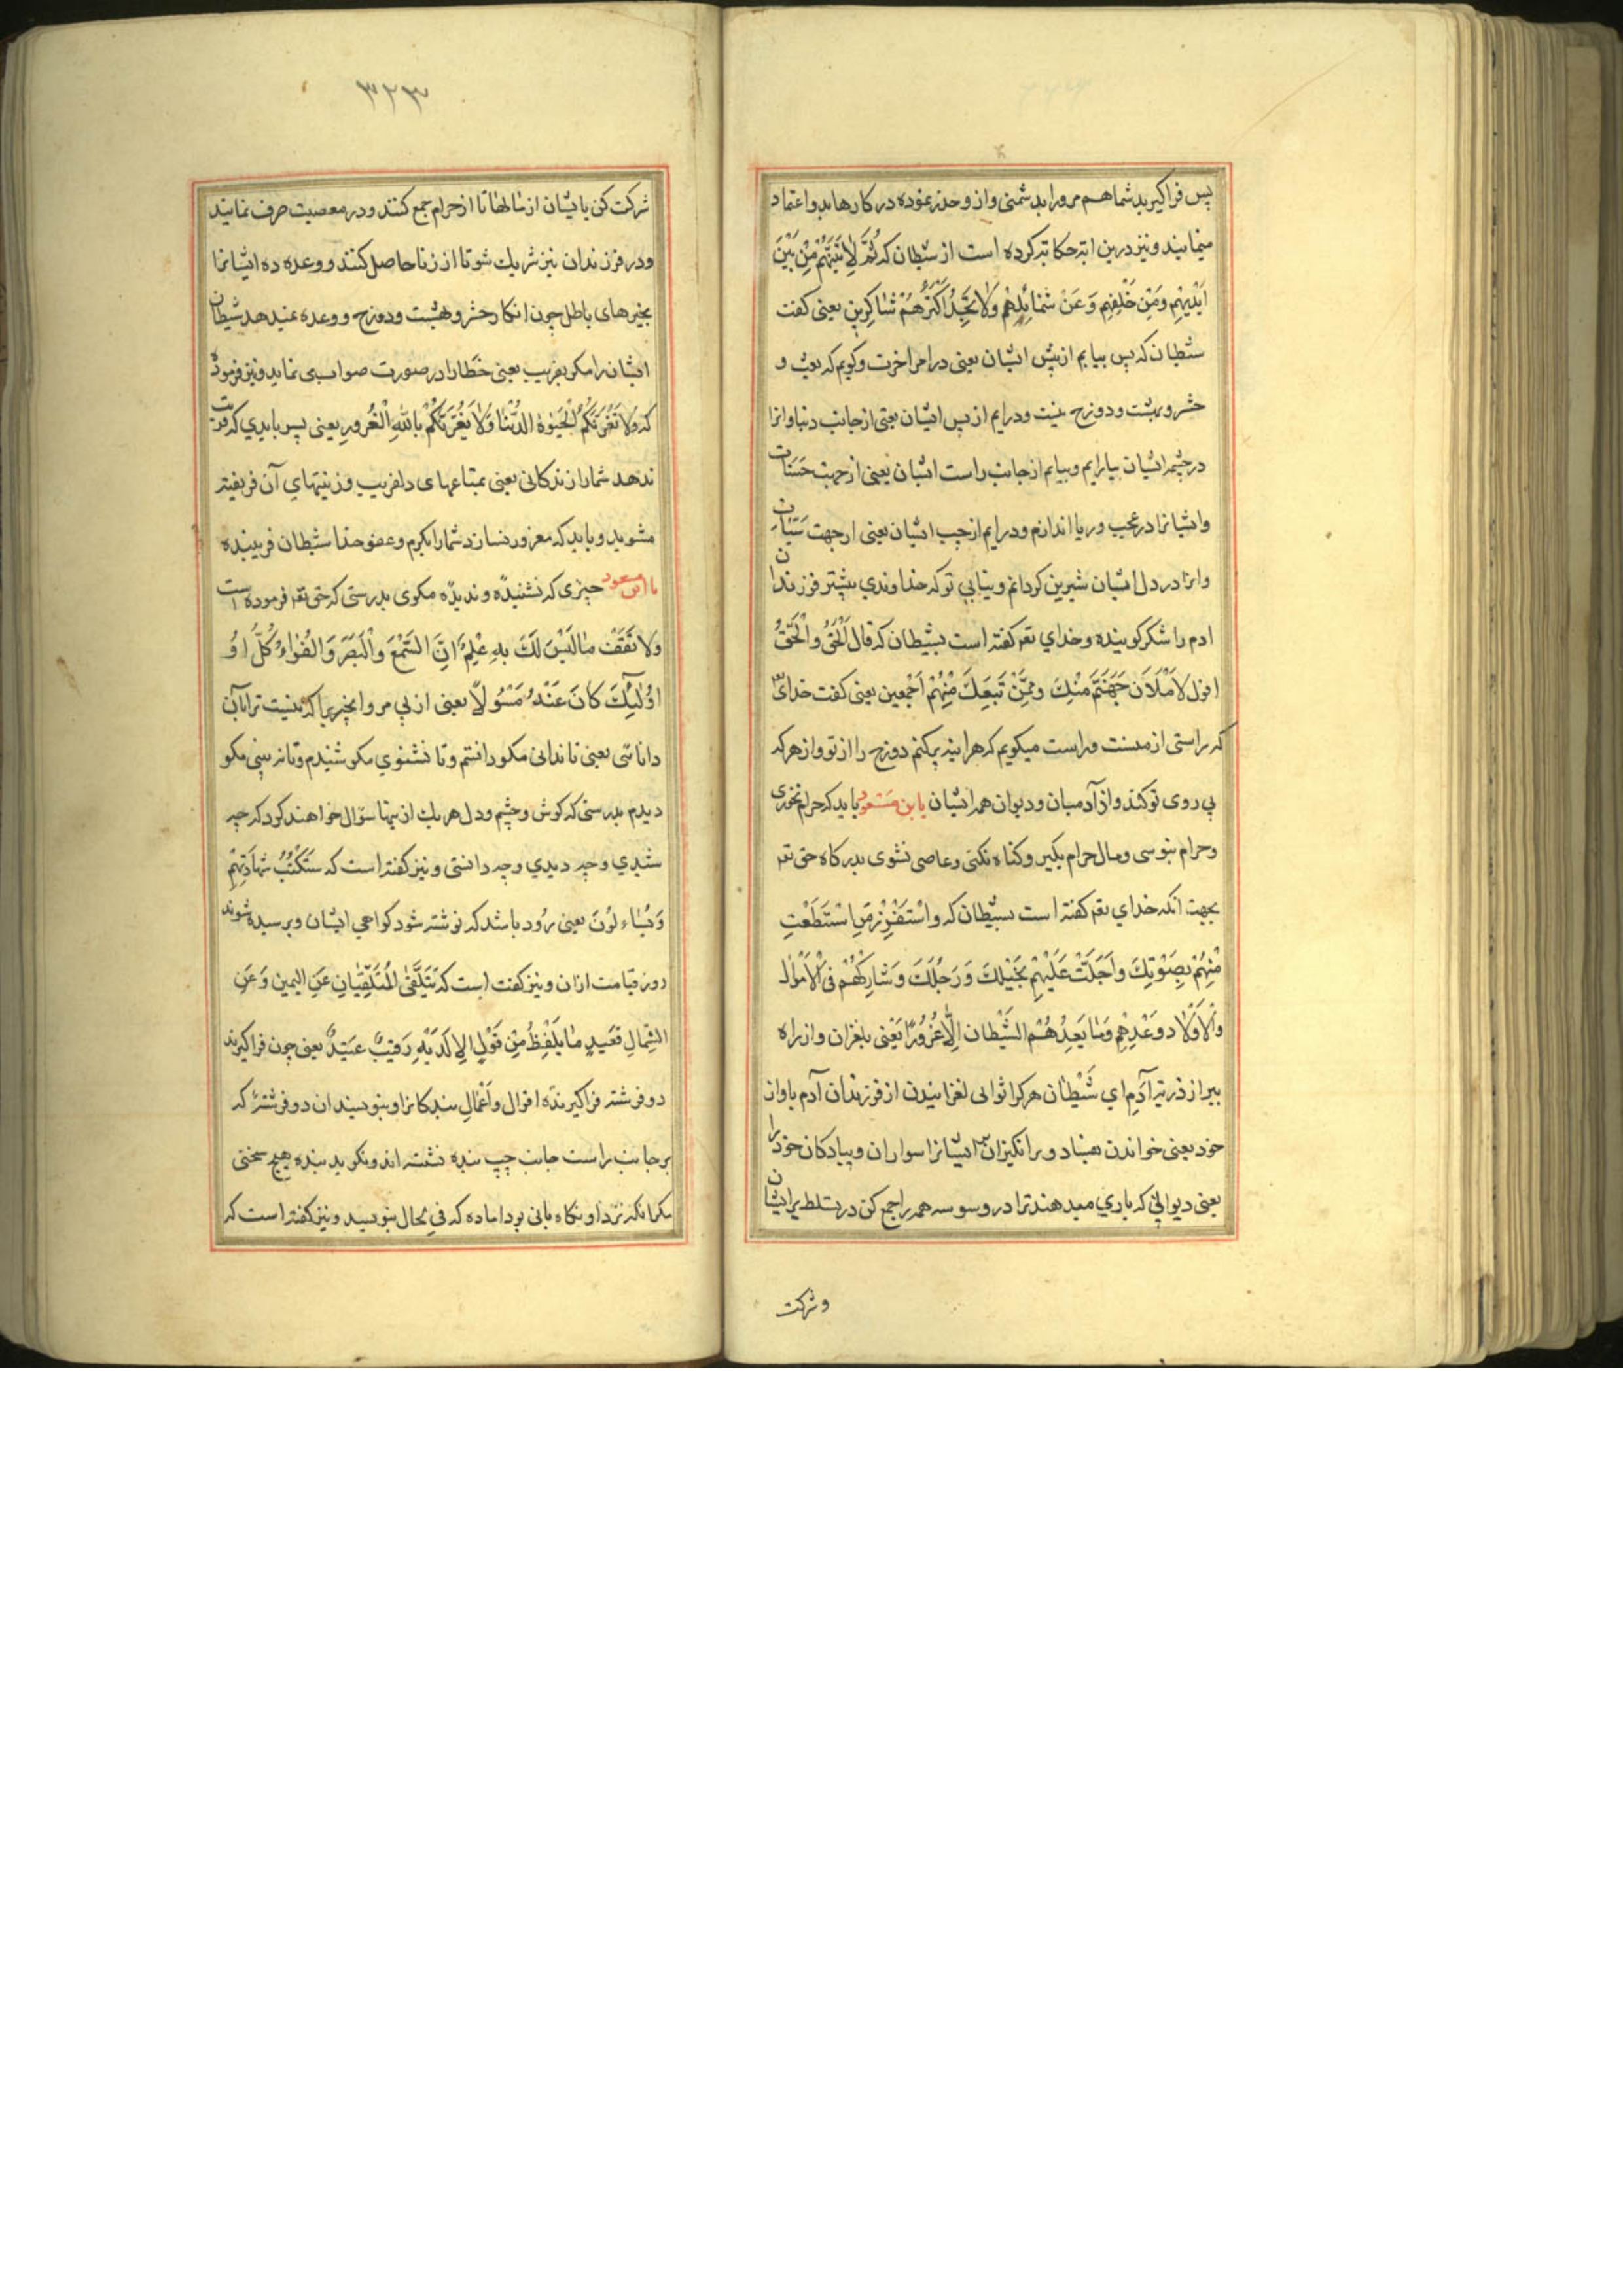 پس فراکیرید شما هم مرورا بدشمنی و ازو حذر نموده در کارها بدو اعتماد
منمایید و نیز درین ایة حکایة کرده است از شیطان که ثُمَّ لَاٰتِیَنَّهُمْ مِنْ بَیْنَ
اَیْدِیْهِمْ وَمَنْ خَلْفِهِم وَعَنْ شَمائِلِهِم وَلاٰ تَجِدُ اَکْثَرُهُمْ شٰاکِرِین یعنی کفت
شیطان که پس بیایم از پیش ایشان یعنی در امر اخرت و کویم که بعث و
حشر و بهشت و دوزخ نیست و درایم از پس ایشان یعنی از جانب دنیا و انرا
در چشم ایشان بیارایم و بیایم از جانب راست ایشان یعنی از جهت حَسَنات
و ایشانرا در عجب و ریا اندازم و درایم از چپ ایشان یعنی از جهت سَیّئات
و انرا در دل ایشان شیرین کردانم و نیابی تو که خداوندی بیشتر فرزندان
ادم را شکر کوینده و خدای تعم کفته است بشیطان که قال اَلْحَقُّ والْحَقُّ
اقول لاَمْلَاَنَ جَهَنَّمَ مِنْكَ وَمِمَّنْ تَبِعَكَ مِنْهُمْ اَجْمَعین یعنی کفت خدای
که راستی از منست و راست میکویم که هراینه پرکنم دوزخ را از تو و از هرکه
پی روی تو کند و از آدمیان و دیوان همه ایشان یابن مَسْعود باید که حرام نخوری
و حرام نپوسی و مال حرام نکیر و کناه نکنی و عاصی نشوی بدرکاه حق تعم
بجهت انکه خدای تعم کفته است بشیطان که واسْتَفْزِزْ مَنِ اسْتَطَعْتِ
مِنْهُمْ بِصَوْتِكَ واَجْلَتْ عَلَیْهِمْ بَخَیْلِكَ وَرَجُلَكَ وَشَارِكْهُمْ فِی الْاَمْوٰال
والْاَوْلٰاد وَعَدْهِم وَمٰا یَعِدُهُمُ الشَّیْطان اِلّٰا غُرُورًا یَعْنی بلغزان و از راه
ببر از ذریة آدَم ای شَیْطان هرکرا توانی لغزانیدن از فرزندان آدم باواز
خود یعنی خواندن بفساد و برانکیزان ایشانرا سواران و پیادکان خود را
یعنی دیوانی که یاری میدهند ترا در وسوسه همه را جمع کن در تسلط بر ایشان
و شرکت
۳۲۳
شرکت کن با ایشان از مالها تا از حرام جمع کنند و در معصیت صرف نمایند
و در فرزندان نیز شریك شو تا از زنا حاصل کنند و وعده ده ایشانرا
بچیزهای باطل چون انکار حشر و بهشت و دوزخ و وعده نمیدهد شیطان
ایشان را مکر بفریب یعنی خطا را در صورت صواب می نماید و نیز فرمود
که ولا تَغُرَّنَّکُمُ الْحَیٰوةُ الدُّنْیٰا وَلاٰ یَغُرَّنَّکُمْ باللهِ الْغُرُور یعنی پس بایدی که فریب
ندهد شما را زندکانی یعنی بمتاعهای دلفریب و زینتهای آن فریفته
مشوید و باید که مغرور نسازد شما را بکرم و عفو خدا شیطان فریبنده
یا ابن مسعود چیزی که نشنیدۀ و ندیدۀ مکوی بدرستی که حق تعم فرموده است
ولا تَقَفْ مٰا لَیْسَ لَكَ بِهِ عْلِمٌ اِنَّ السَّمْعَ والْبَصَرَ وَالفُؤٰادَ کُلُّ اوُ
اوُلٰئِكَ کٰانَ عَنْهُ مَسْئُولًا یعنی از پی مرو انچیزیرا که نیست ترا بآن
دانائی یعنی تا ندانی مکو دانستم و تا نشنوی مکو شنیدم و تا نبینی مکو
دیدم بدرستی که کوش و چشم و دل هریك از نها سؤال خواهند کرد که چه
شنیدی و چه دیدی و چه دانستی و نیز کفته است که سَتَکْتُبُ شَهادَتِهُمْ
وَیُسْاء لُونَ یعنی زود باشد که نوشته شود کواهی ایشان و پرسیده شوند
روز قیامت ازان و نیز کفت است که یَتَلَقَّی المُتَلَقّیٰانِ عَنِ الیمین وَعَنِ
الشِمالِ قَعَید مٰا یَلْفِظُ مِنْ قَوْلٍ اِلا لَدَیْهِ رَقیبٌ عَتیدٌ یعنی چون فراکیرند
دو فرشته فراکیرنده اقوال و اَعْمالِ بندکانرا و بنویسند ان دو فرشته که
بر جانب راست جانب چپ بنده نشسته اند و نکوید بنده هیچ سخنی
مکر انکه نزد او نکاه بانی بود اماده که فی الحال بنویسد و نیز کفته است که